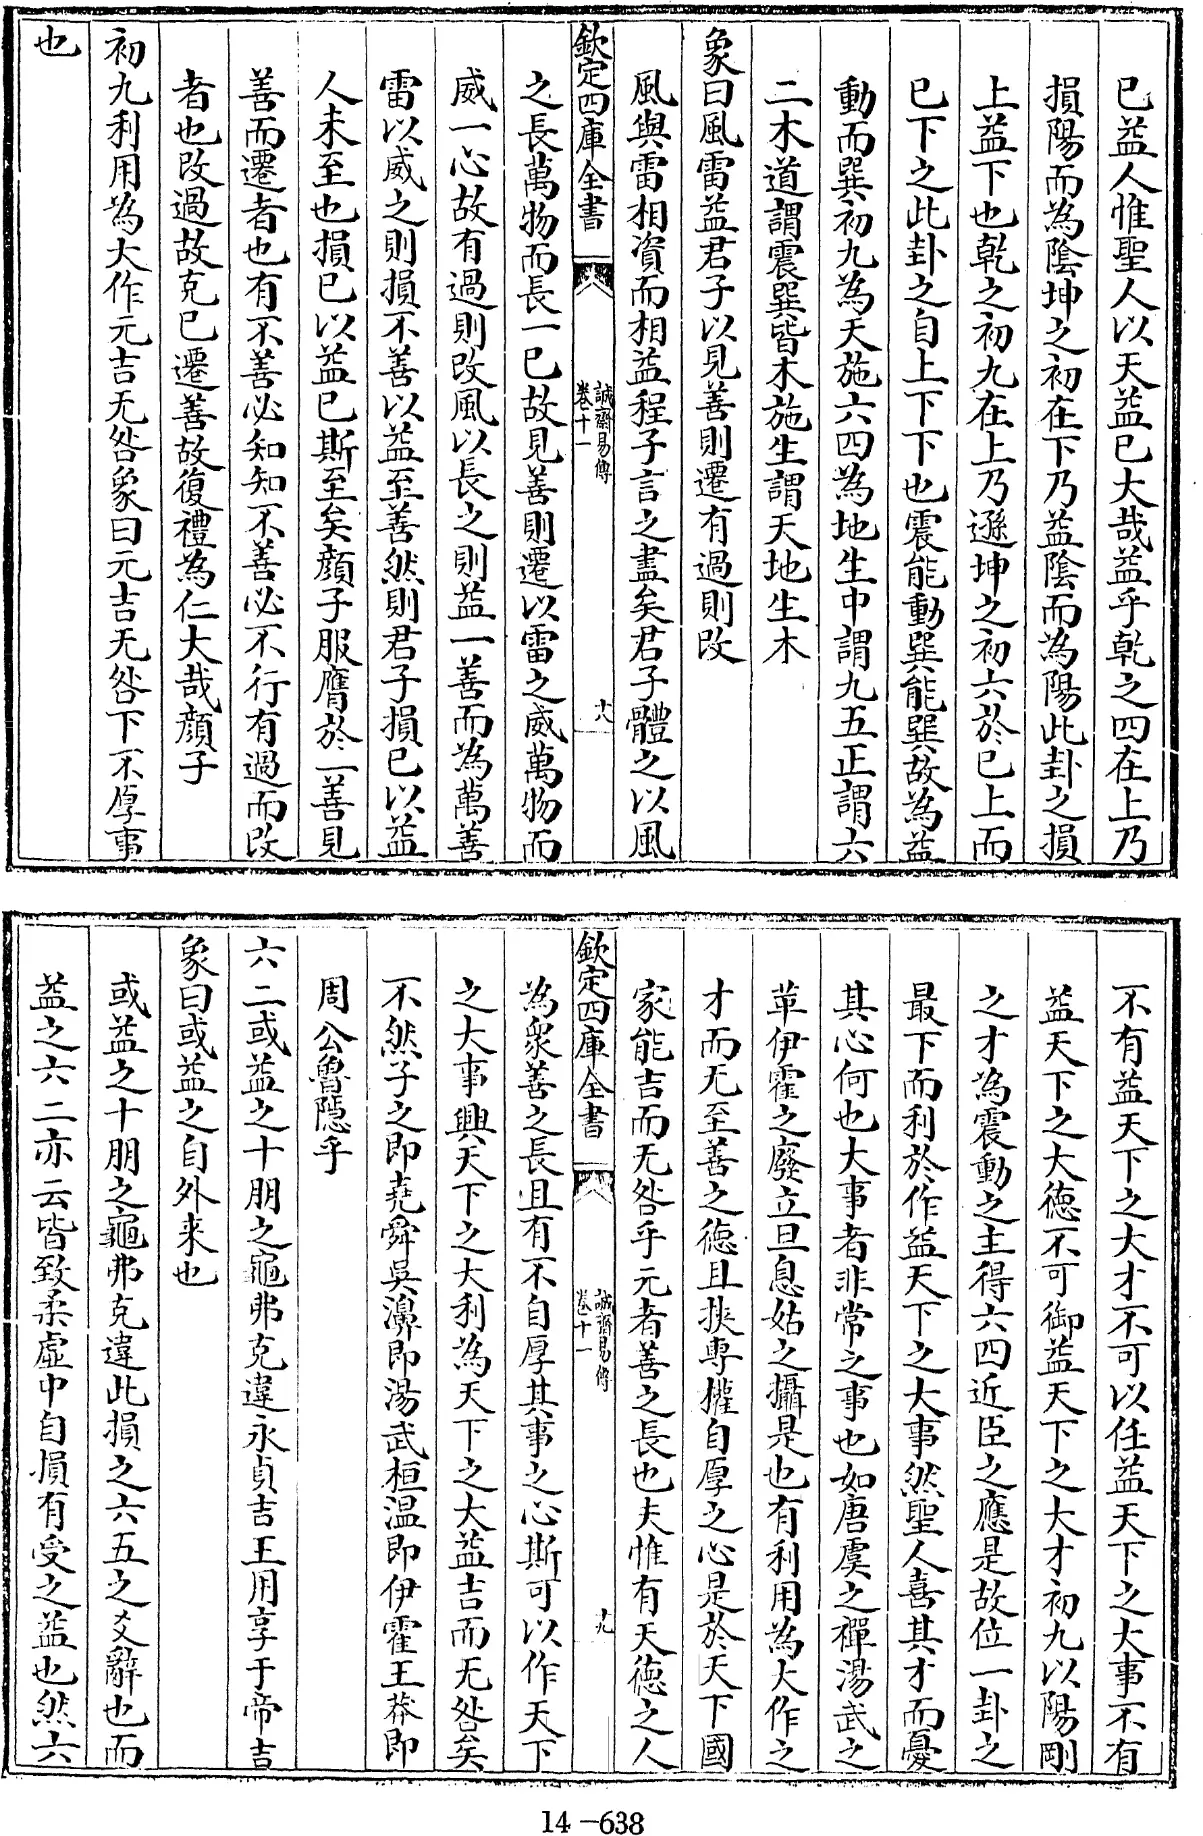 已益人惟聖人以天益已大哉益乎乾之四在上乃
損陽而為陰坤之初在下乃益陰而為陽此卦之損
上益下也乾之初九在上乃遜坤之初六於已上而
已下之此卦之自上下下也震能動巽能巽故為益
動而巽初九為天施六四為地生中謂九五正謂六
二木道謂震巽皆木施生謂天地生木
象曰風雷益君子以見善則遷有過則改
風與雷相資而相益程子言之盡矣君子體之以風
欽定四庫全書
誠齋易傳
卷十一
十八
之長萬物而長一已故見善則遷以雷之威萬物而
威一心故有過則改風以長之則益一善而為萬善
雷以威之則損不善以益至善然則君子損已以益
人未至也損已以益已斯至矣顔子服膺於一善見
善而遷者也有不善必知知不善必不行有過而改
者也改過故克已遷善故復禮為仁大哉顔子
初九利用為大作元吉无咎象曰元吉无咎下不厚事
也
不有益天下之大才不可以任益天下之大事不有
益天下之大德不可御益天下之大才初九以陽剛
之才為震動之主得六四近臣之應是故位一卦之
最下而利於作益天下之大事然聖人喜其才而憂
其心何也大事者非常之事也如唐虞之禪湯武之
革伊霍之廢立旦息姑之攝是也有利用為大作之
才而无至善之德且挾專權自厚之心是於天下國
家能吉而无咎乎元者善之長也夫惟有天德之人
欽定四庫全書
誠齋易傳
卷十一
十九
為衆善之長且有不自厚其事之心斯可以作天下
之大事興天下之大利為天下之大益吉而无咎矣
不然子之即堯舜吳濞即湯武桓温即伊霍王莽即
周公魯隱乎
六二或益之十朋之龜弗克違永貞吉王用享于帝吉
象曰或益之自外来也
或益之十朋之龜弗克違此損之六五之爻辭也而
益之六二亦云皆致柔虛中自損有受之益也然六
14-638